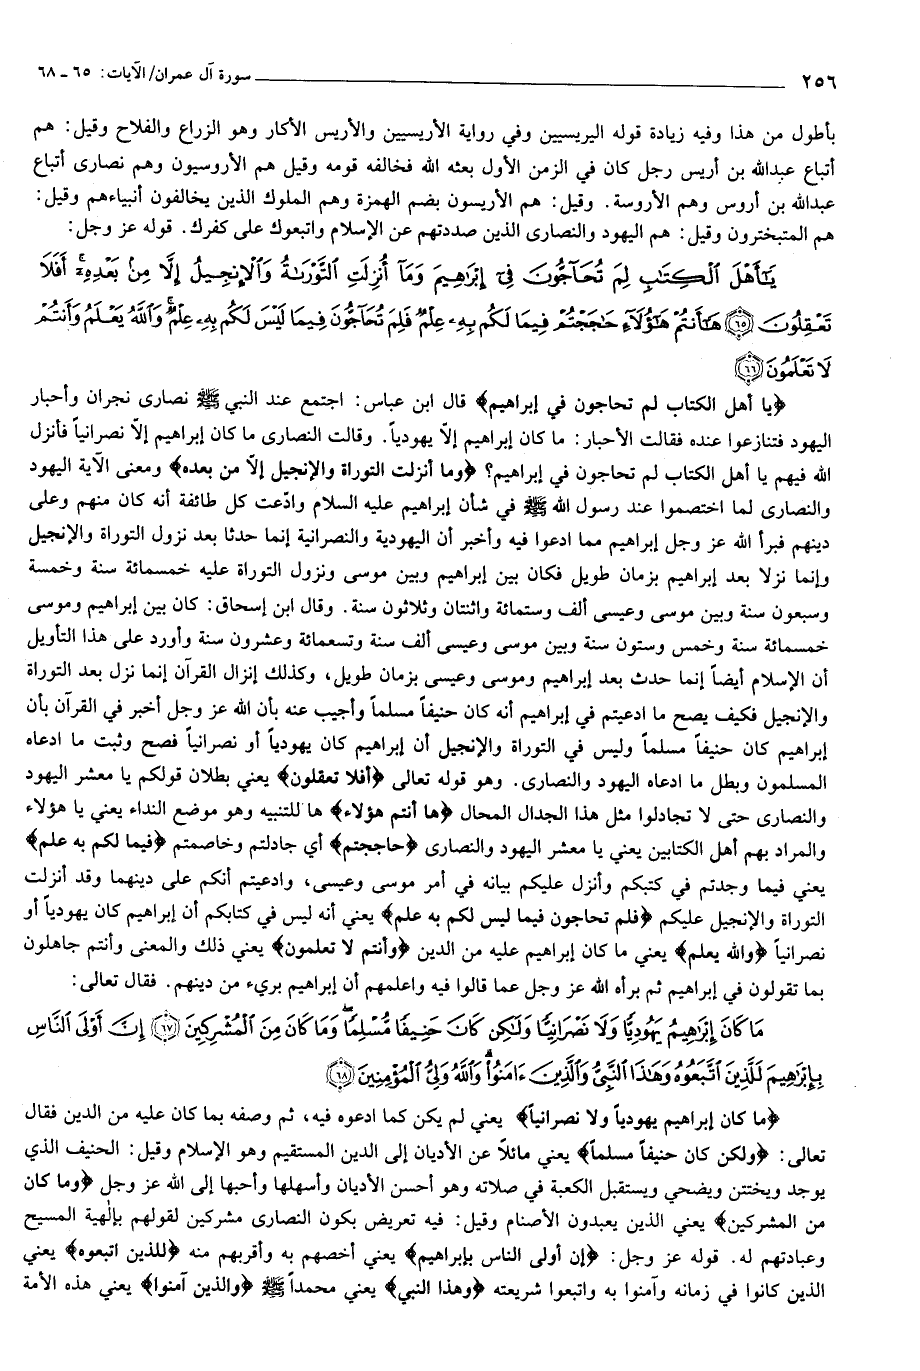 ٢٥٦ سورة آل عمران/الآيات: ٦٥ ـ ٦٨
بأطول من هذا وفيه زيادة قوله اليريسيين وفي رواية الأريسيين والأريس الأكار وهو الزراع والفلاح وقيل: هم
أتباع عبدالله بن أريس رجل كان في الزمن الأول بعثه الله فخالفه قومه وقيل هم الأروسيون وهم نصارى أتباع
عبدالله بن أروس وهم الأروسة. وقيل: هم الأريسون بضم الهمزة وهم الملوك الذين يخالفون أنبياءهم وقيل:
هم المتبخترون وقيل: هم اليهود والنصارى الذين صددتهم عن الإسلام واتبعوك على كفرك. قوله عز وجل:
يَٰٓأَهْلَ ٱلْكِتَٰبِ لِمَ تُحَآجُّونَ فِىٓ إِبْرَٰهِيمَ وَمَآ أُنزِلَتِ ٱلتَّوْرَىٰةُ وَٱلْإِنجِيلُ إِلَّا مِنۢ بَعْدِهِۦٓ ۚ أَفَلَا
تَعْقِلُونَ ﴿٦٥﴾ هَٰٓأَنتُمْ هَٰٓؤُلَآءِ حَٰجَجْتُمْ فِيمَا لَكُم بِهِۦ عِلْمٌ فَلِمَ تُحَآجُّونَ فِيمَا لَيْسَ لَكُم بِهِۦ عِلْمٌ ۚ وَٱللَّهُ يَعْلَمُ وَأَنتُمْ
لَا تَعْلَمُونَ ﴿٦٦﴾
﴿يا أهل الكتاب لم تحاجون في إبراهيم﴾ قال ابن عباس: اجتمع عند النبي ﷺ نصارى نجران وأحبار
اليهود فتنازعوا عنده فقالت الأحبار: ما كان إبراهيم إلّا يهودياً. وقالت النصارى ما كان إبراهيم إلّا نصرانياً فأنزل
الله فيهم يا أهل الكتاب لم تحاجون في إبراهيم؟ ﴿وما أنزلت التوراة والإنجيل إلّا من بعده﴾ ومعنى الآية اليهود
والنصارى لما اختصموا عند رسول الله ﷺ في شأن إبراهيم عليه السلام وادّعت كل طائفة أنه كان منهم وعلى
دينهم فبرأ الله عز وجل إبراهيم مما ادعوا فيه وأخبر أن اليهودية والنصرانية إنما حدثا بعد نزول التوراة والإنجيل
وإنما نزلا بعد إبراهيم بزمان طويل فكان بين إبراهيم وبين موسى ونزول التوراة عليه خمسمائة سنة وخمسة
وسبعون سنة وبين موسى وعيسى ألف وستمائة واثنتان وثلاثون سنة. وقال ابن إسحاق: كان بين إبراهيم وموسى
خمسمائة سنة وخمس وستون سنة وبين موسى وعيسى ألف سنة وتسعمائة وعشرون سنة وأورد على هذا التأويل
أن الإسلام أيضاً إنما حدث بعد إبراهيم وموسى وعيسى بزمان طويل، وكذلك إنزال القرآن إنما نزل بعد التوراة
والإنجيل فكيف يصح ما ادعيتم في إبراهيم أنه كان حنيفاً مسلماً وأجيب عنه بأن الله عز وجل أخبر في القرآن بأن
إبراهيم كان حنيفاً مسلماً وليس في التوراة والإنجيل أن إبراهيم كان يهودياً أو نصرانياً فصح وثبت ما ادعاه
المسلمون وبطل ما ادعاه اليهود والنصارى. وهو قوله تعالى ﴿أفلا تعقلون﴾ يعني بطلان قولكم يا معشر اليهود
والنصارى حتى لا تجادلوا مثل هذا الجدال المحال ﴿ها أنتم هؤلاء﴾ ها للتنبيه وهو موضع النداء يعني يا هؤلاء
والمراد بهم أهل الكتابين يعني يا معشر اليهود والنصارى ﴿حاججتم﴾ أي جادلتم وخاصمتم ﴿فيما لكم به علم﴾
يعني فيما وجدتم في كتبكم وأنزل عليكم بيانه في أمر موسى وعيسى، وادعيتم أنكم على دينهما وقد أنزلت
التوراة والإنجيل عليكم ﴿فلم تحاجون فيما ليس لكم به علم﴾ يعني أنه ليس في كتابكم أن إبراهيم كان يهودياً أو
نصرانياً ﴿والله يعلم﴾ يعني ما كان إبراهيم عليه من الدين ﴿وأنتم لا تعلمون﴾ يعني ذلك والمعنى وأنتم جاهلون
بما تقولون في إبراهيم ثم برأه الله عز وجل عما قالوا فيه واعلمهم أن إبراهيم بريء من دينهم. فقال تعالى:
مَا كَانَ إِبْرَٰهِيمُ يَهُودِيًّا وَلَا نَصْرَانِيًّا وَلَٰكِن كَانَ حَنِيفًا مُّسْلِمًا وَمَا كَانَ مِنَ ٱلْمُشْرِكِينَ ﴿٦٧﴾ إِنَّ أَوْلَى ٱلنَّاسِ
بِإِبْرَٰهِيمَ لَلَّذِينَ ٱتَّبَعُوهُ وَهَٰذَا ٱلنَّبِىُّ وَٱلَّذِينَ ءَامَنُوا۟ ۗ وَٱللَّهُ وَلِىُّ ٱلْمُؤْمِنِينَ ﴿٦٨﴾
﴿ما كان إبراهيم يهودياً ولا نصرانياً﴾ يعني لم يكن كما ادعوه فيه، ثم وصفه بما كان عليه من الدين فقال
تعالى: ﴿ولكن كان حنيفاً مسلماً﴾ يعني مائلاً عن الأديان إلى الدين المستقيم وهو الإسلام وقيل: الحنيف الذي
يوجد ويختتن ويضحي ويستقبل الكعبة في صلاته وهو أحسن الأديان وأسهلها وأحبها إلى الله عز وجل ﴿وما كان
من المشركين﴾ يعني الذين يعبدون الأصنام وقيل: فيه تعريض بكون النصارى مشركين لقولهم بإلٰهية المسيح
وعبادتهم له. قوله عز وجل: ﴿إن أولى الناس بإبراهيم﴾ يعني أخصهم به وأقربهم منه ﴿للذين اتبعوه﴾ يعني
الذين كانوا في زمانه وآمنوا به واتبعوا شريعته ﴿وهذا النبي﴾ يعني محمداً ﷺ ﴿والذين آمنوا﴾ يعني هذه الأمة